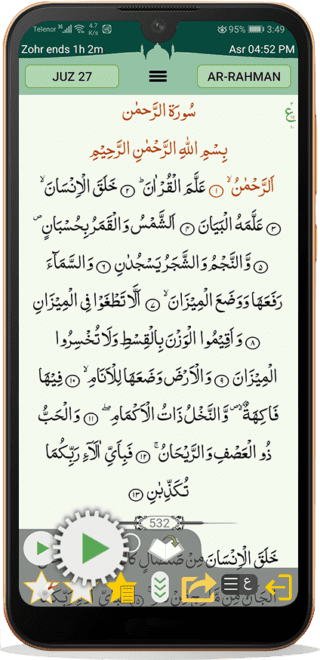 Telenor 4.7 K/s 95% 3:49
Zohr ends 1h 2m Asr 04:52 PM
JUZ 27 AR-RAHMAN
سُورَةُ الرَّحْمٰن ع
بِسْمِ اللهِ الرَّحْمٰنِ الرَّحِيْمِ
اَلرَّحْمٰنُ ۙ ۱ عَلَّمَ الْقُرْاٰنَ ؕ ۲ خَلَقَ الْاِنْسَانَ ۙ
۳ عَلَّمَهُ الْبَيَانَ ۴ اَلشَّمْسُ وَالْقَمَرُ بِحُسْبَانٍ ۪
۵ وَّالنَّجْمُ وَالشَّجَرُ يَسْجُدٰنِ ۶ وَالسَّمَآءَ
رَفَعَهَا وَوَضَعَ الْمِيْزَانَ ۙ ۷ اَلَّا تَطْغَوْا فِى الْمِيْزَانِ
۸ وَاَقِيْمُوا الْوَزْنَ بِالْقِسْطِ وَلَا تُخْسِرُوا
الْمِيْزَانَ ۹ وَالْاَرْضَ وَضَعَهَا لِلْاَنَامِ ۙ ۱۰ فِيْهَا
فَاكِهَةٌ ۪ۙ وَّالنَّخْلُ ذَاتُ الْاَكْمَامِ ۖ ۱۱ وَالْحَبُّ
ذُو الْعَصْفِ وَالرَّيْحَانُ ۚ ۱۲ فَبِاَىِّ اٰلَآءِ رَبِّكُمَا
تُكَذِّبٰنِ ۱۳
532
خَلَقَ الْاِنْسَانَ مِنْ
ع